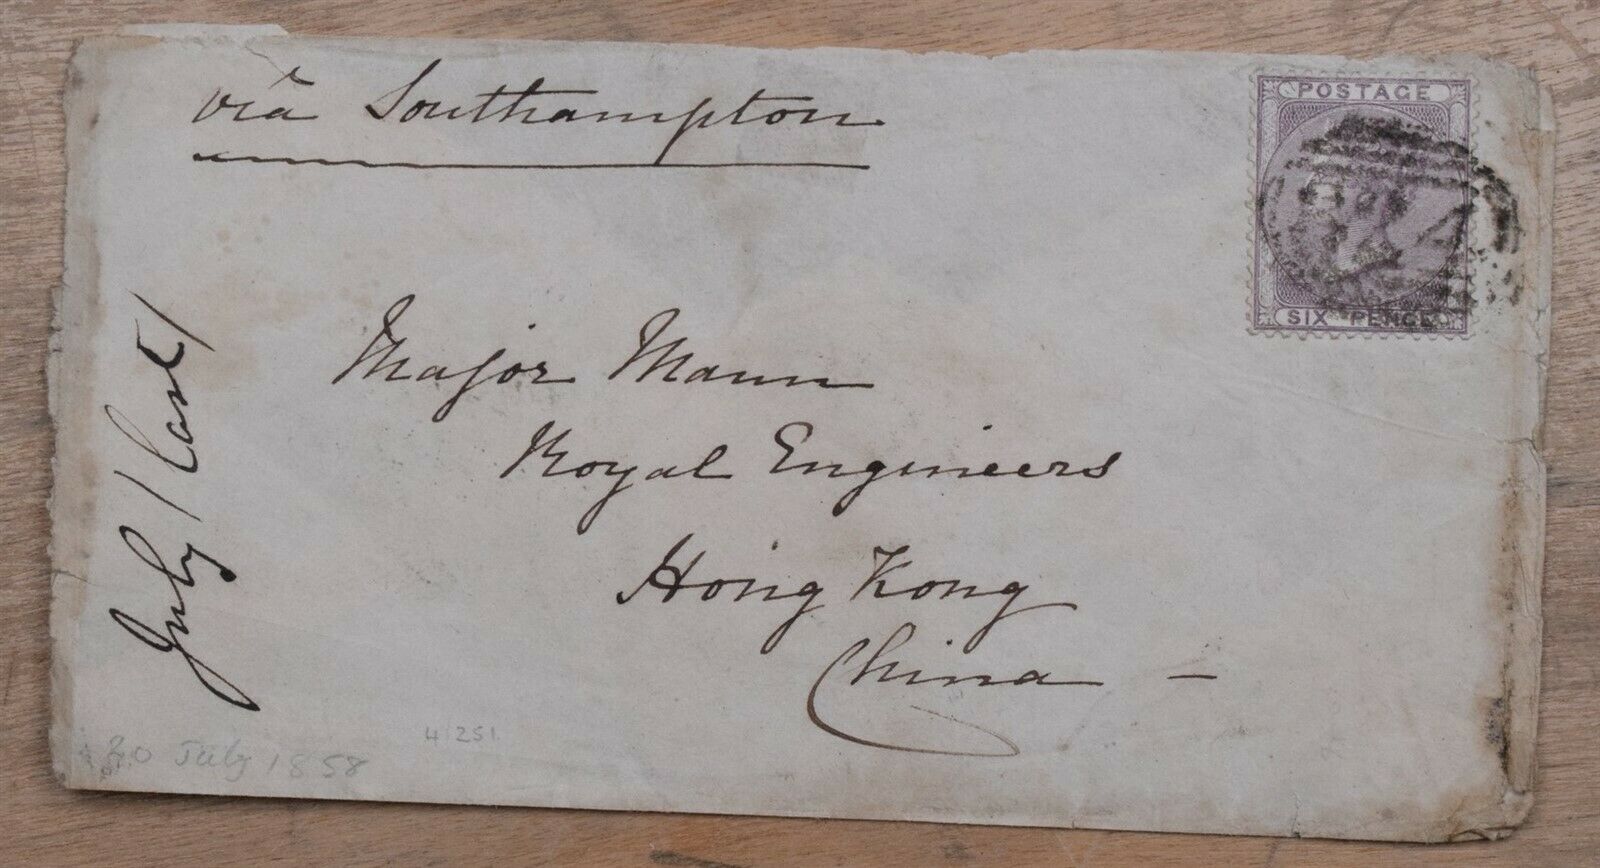 via Southampton
POSTAGE
SIX PENCE
Major Mann
Royal Engineers
Hong Kong
China —
July / last /
20 July 1858
41251